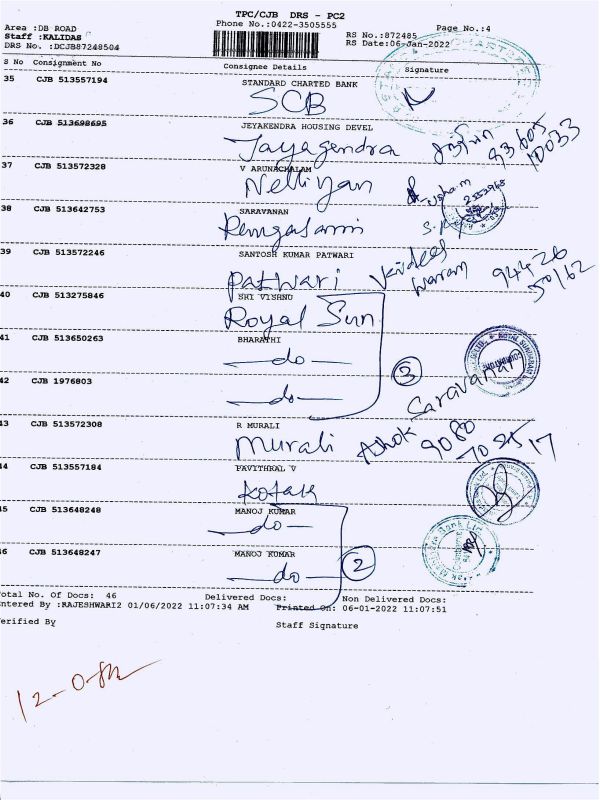 TPC/CJB DRS - PC2
Area :DB ROAD
Phone No.:0422-3505555
Page No.:4
Staff :KALIDAS
RS No.:872485
DRS No. :DCJB87248504
RS Date:06-Jan-2022
S No Consignment No Consignee Details Signature
35 CJB 513557194 STANDARD CHARTED BANK
SCB
36 CJB 513698695 JEYAKENDRA HOUSING DEVEL
Jayagendra 93605
10033
37 CJB 513572328 V ARUNACHALAM
Nelliyan
38 CJB 513642753 SARAVANAN
Rengasami
39 CJB 513572246 SANTOSH KUMAR PATWARI
Patwari 94426
50162
40 CJB 513275846 SRI VISHNU
Royal Sun
41 CJB 513650263 BHARATHI
—do—
3
42 CJB 1976803
—do—
Saravanan
43 CJB 513572308 R MURALI
Murali Ashok 9080
702517
44 CJB 513557184 PAVITHRAL V
Kotak
45 CJB 513648248 MANOJ KUMAR
—do—
46 CJB 513648247 MANOJ KUMAR
—do— 2
Total No. Of Docs: 46 Delivered Docs: Non Delivered Docs:
Entered By :RAJESHWARI2 01/06/2022 11:07:34 AM Printed On: 06-01-2022 11:07:51
Verified By Staff Signature